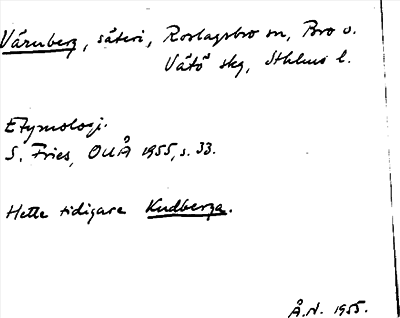 Väruberg, säteri, Roslagsbro sn, Bro o.
Vätö skg, Sthlms l.
Etymologi.
S. Fries, OUÅ 1955, s. 33.
Hette tidigare Kudberga.
Å.N. 1955.